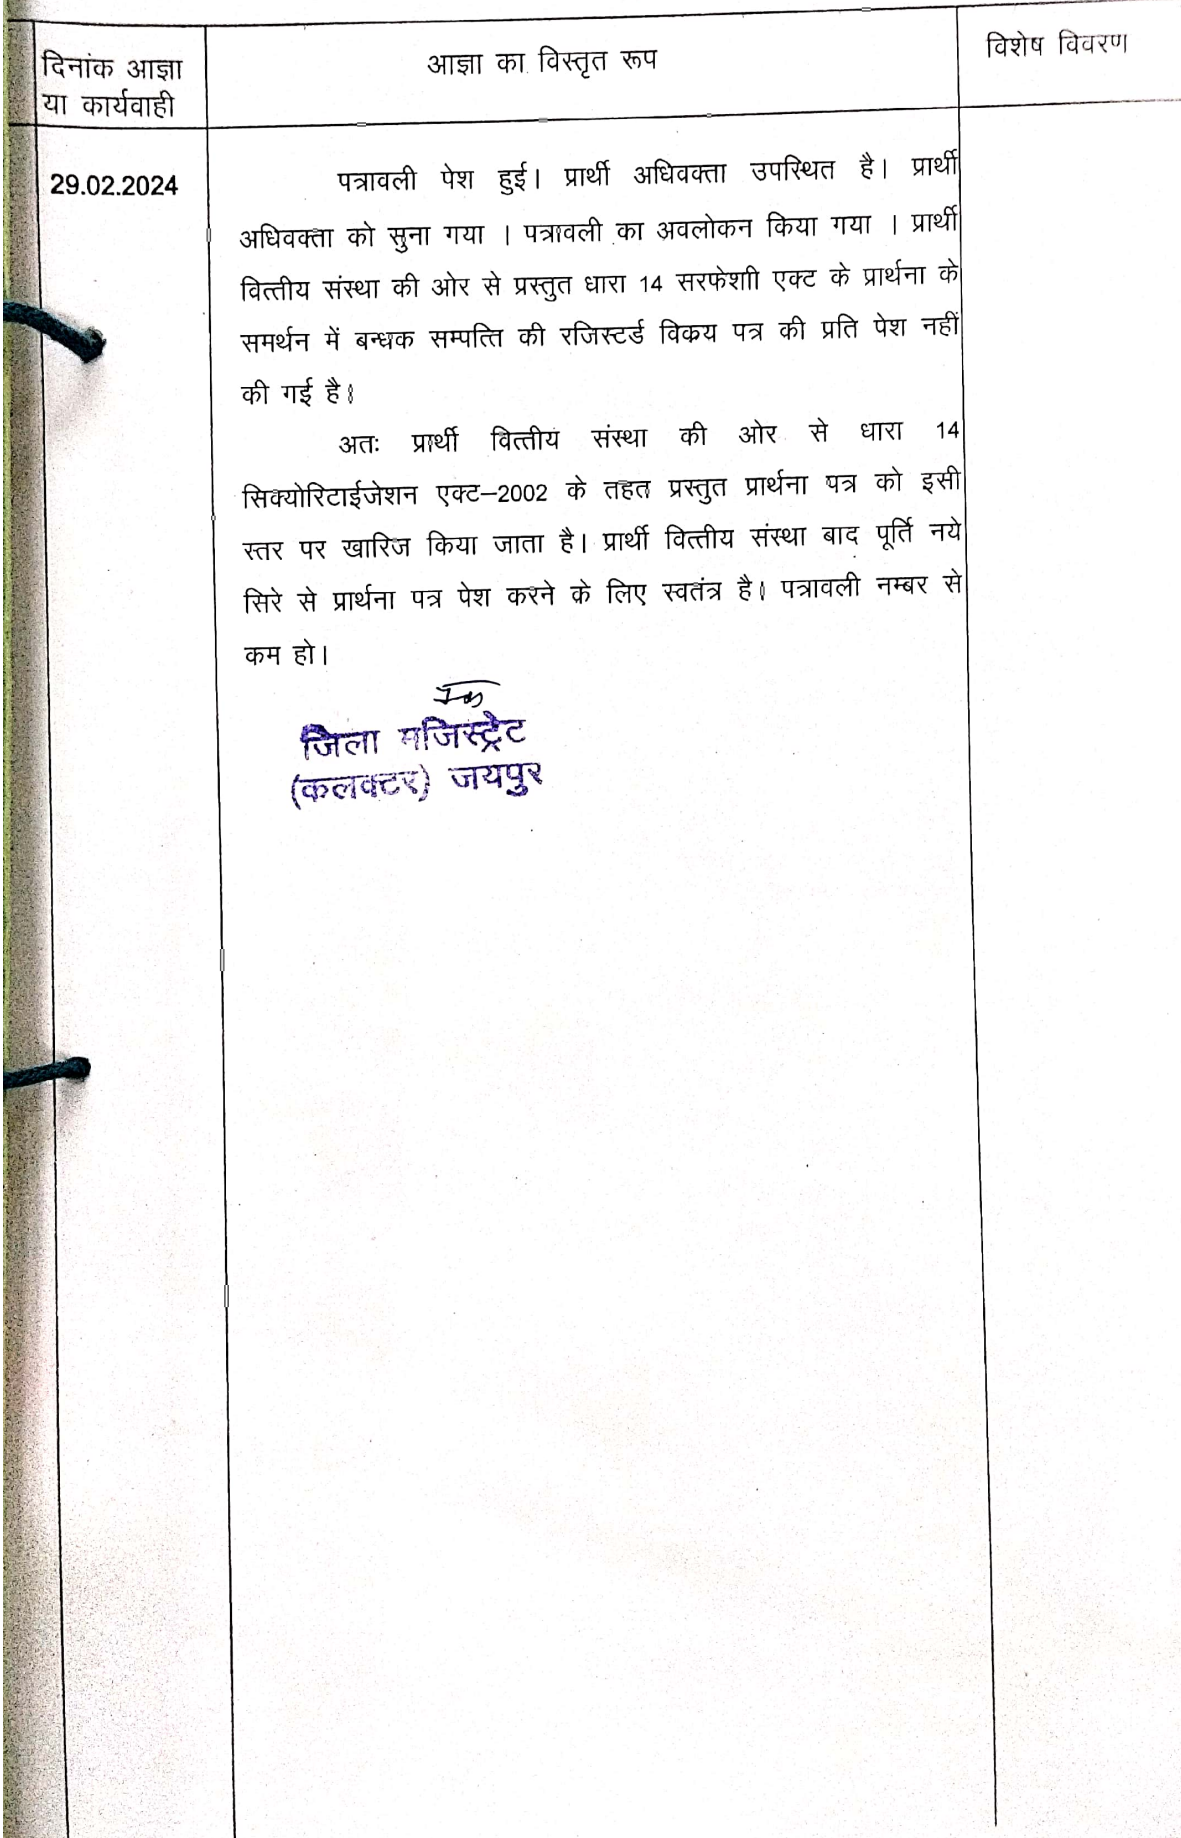 दिनांक आज्ञा
या कार्यवाही
आज्ञा का विस्तृत रूप
विशेष विवरण
29.02.2024
पत्रावली पेश हुई। प्रार्थी अधिवक्ता उपस्थित है। प्रार्थी
अधिवक्ता को सुना गया । पत्रावली का अवलोकन किया गया । प्रार्थी
वित्तीय संस्था की ओर से प्रस्तुत धारा 14 सरफेशाी एक्ट के प्रार्थना के
समर्थन में बन्धक सम्पत्ति की रजिस्टर्ड विकय पत्र की प्रति पेश नहीं
की गई है।
अतः प्रार्थी वित्तीय संस्था की ओर से धारा 14
सिक्योरिटाईजेशन एक्ट–2002 के तहत प्रस्तुत प्रार्थना पत्र को इसी
स्तर पर खारिज किया जाता है। प्रार्थी वित्तीय संस्था बाद पूर्ति नये
सिरे से प्रार्थना पत्र पेश करने के लिए स्वतंत्र है। पत्रावली नम्बर से
कम हो।
जिला मजिस्ट्रेट
(कलक्टर) जयपुर